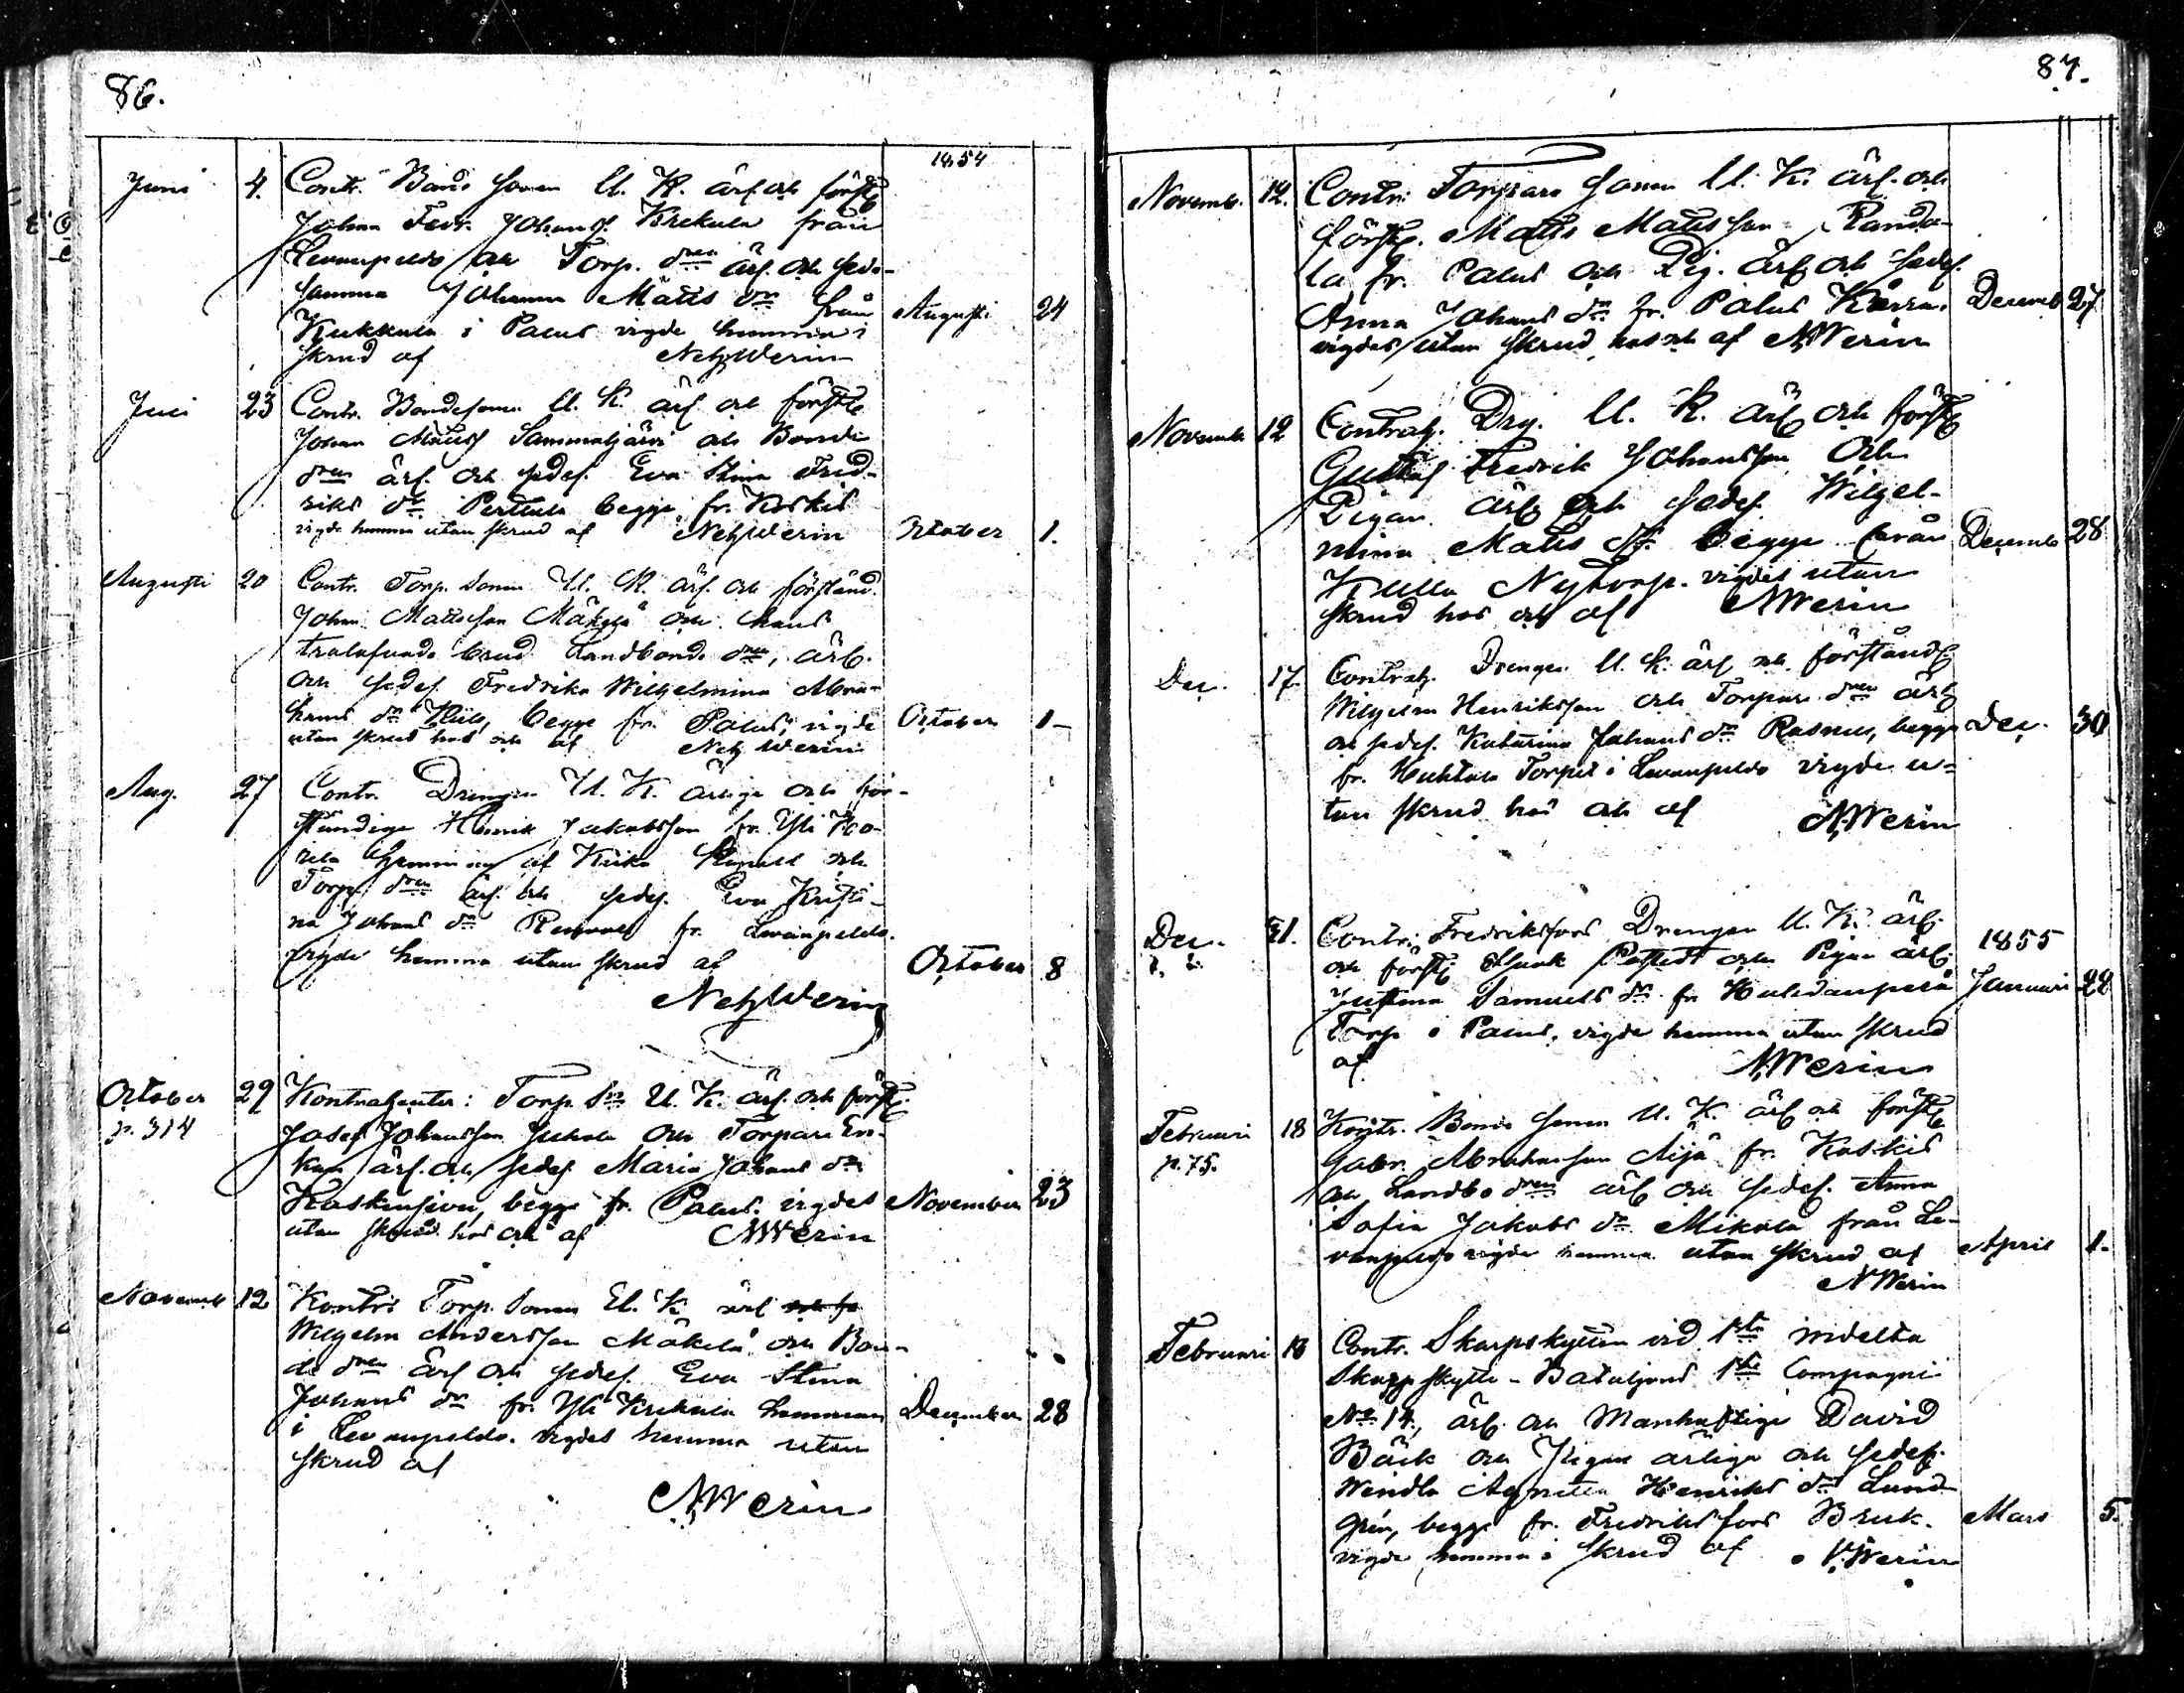 86.
1854
Juni 4. Contr. Bonde Sonen U. K. ärl. och förstg
Johan Fedr. Johanss. Krekula från
Levanpeldo och Torp. dren ärl. och sede-
samma Johanna Matts dr från Augusti 24
Kukkula i Palus vigde hemma i
skrud af NehzWerin
Juli 23 Contr. Bondesonen U. K. ärl. och förstg
Johan Mattss Sammaljärvi och Bonde
dren ärl. och sedes. Eva Stina Fred-
riks dr Perttula begge fr. Koskis
vigde hemma utan skrud af NehzWerin October 1.
Augusti 20 Contr. Torp. Sonen U. K. ärl. och förständ.
Johan Mattsson Mäkylä och hans
trolofvade brud Landbonde dren, ärl.
och sedes. Fredrika Wilhelmina Abra-
hams dr begge fr. Palus, vigde October 1-
utan skrud hos och af Nehz Werin
Aug. 27 Contr. Drengen U. K. ärlige och för-
ståndige Henrik Jakobsson fr. Yli
hemman af och
Torp. dren ärl. och sedes. Eva Kristi-
na Johans dr fr. Levanpeldo.
vigde hemma utan skrud af October 8
NehzWerin
October 29 Kontrahenter: Torp. Sn U. K. ärl. och förstg.
p. 314 Josef Johansson Jukola och Torpare En-
kan ärl. och sedes. Maria Johans dr
begge fr. Palus. vigdes November 23
utan skrud hos och af NWerin
Novemb 12 Kontr: Torp. Sonen U. K. ärl
Wilhelm Andersson Mäkelä och Bon-
de dren ärl och sedes. Eva Stina
Johans dr fr. Yli Krekula hemman December 28
i Levanpeldo. vigdes hemma utan
skrud af
NWerin
87.
Novemb. 12. Contr: Torpare Sonen U. K. ärl. och
förstg. Matts Matsson Panda-
la fr. Palus och Pig. ärl och sedes.
Anna Johans dr fr. Palus Decemb 27
vigdes utan skrud hos och af NWerin
Novemb 12 Contrah. Drg. U. K. ärl och förstg
Gustaf Fredrik Johansson och
Pigan ärl och sedes Wilhel-
mina Matts dr. begge från Decemb 28
Kulla Nytorp. vigdes utan
skrud hos och af NWerin
Dec. 17. Contrah. Drengen U. K. ärl och förståndg
Wilhelm Henriksson och Torpare dren ärl
och sedes. Katarina Johans dr Rasmus, begge Dec. 30
fr. Huhtala Torpet i Levanpeldo vigde u-
tan skrud hos och af NWerin
Dec. 31. Contr: Fredriksfors Drengen U. K. ärl. 1855
och förstg Isaak och Pigan ärl
Justina Samuels dr fr. Januari 22
Torp i Palus. vigde hemma utan skrud
af NWerin
Februari 18 Kontr. Bonde Sonen U. K. ärl och förstg
p. 75. Gabr. Abrahamsson Äijä fr. Koskis
och Landbo dren ärl och sedes. Anna
Sofia Jakobs dr Mikola från Le-
vanpeldo vigde hemma utan skrud af April 1.
NWerin
Februari 18 Contr. Skarpskytten vid 1sta indelta
Skarpskytte-Bataljons 1sta Compagni
No 14, ärl. och Manhaftige David
Bäck och Pigan ärliga och sedes.
Wendla Agneta Henriks dr Lund
grén, begge fr. Fredriksfors Bruk. Mars 5.
vigde hemma i skrud af NWerin